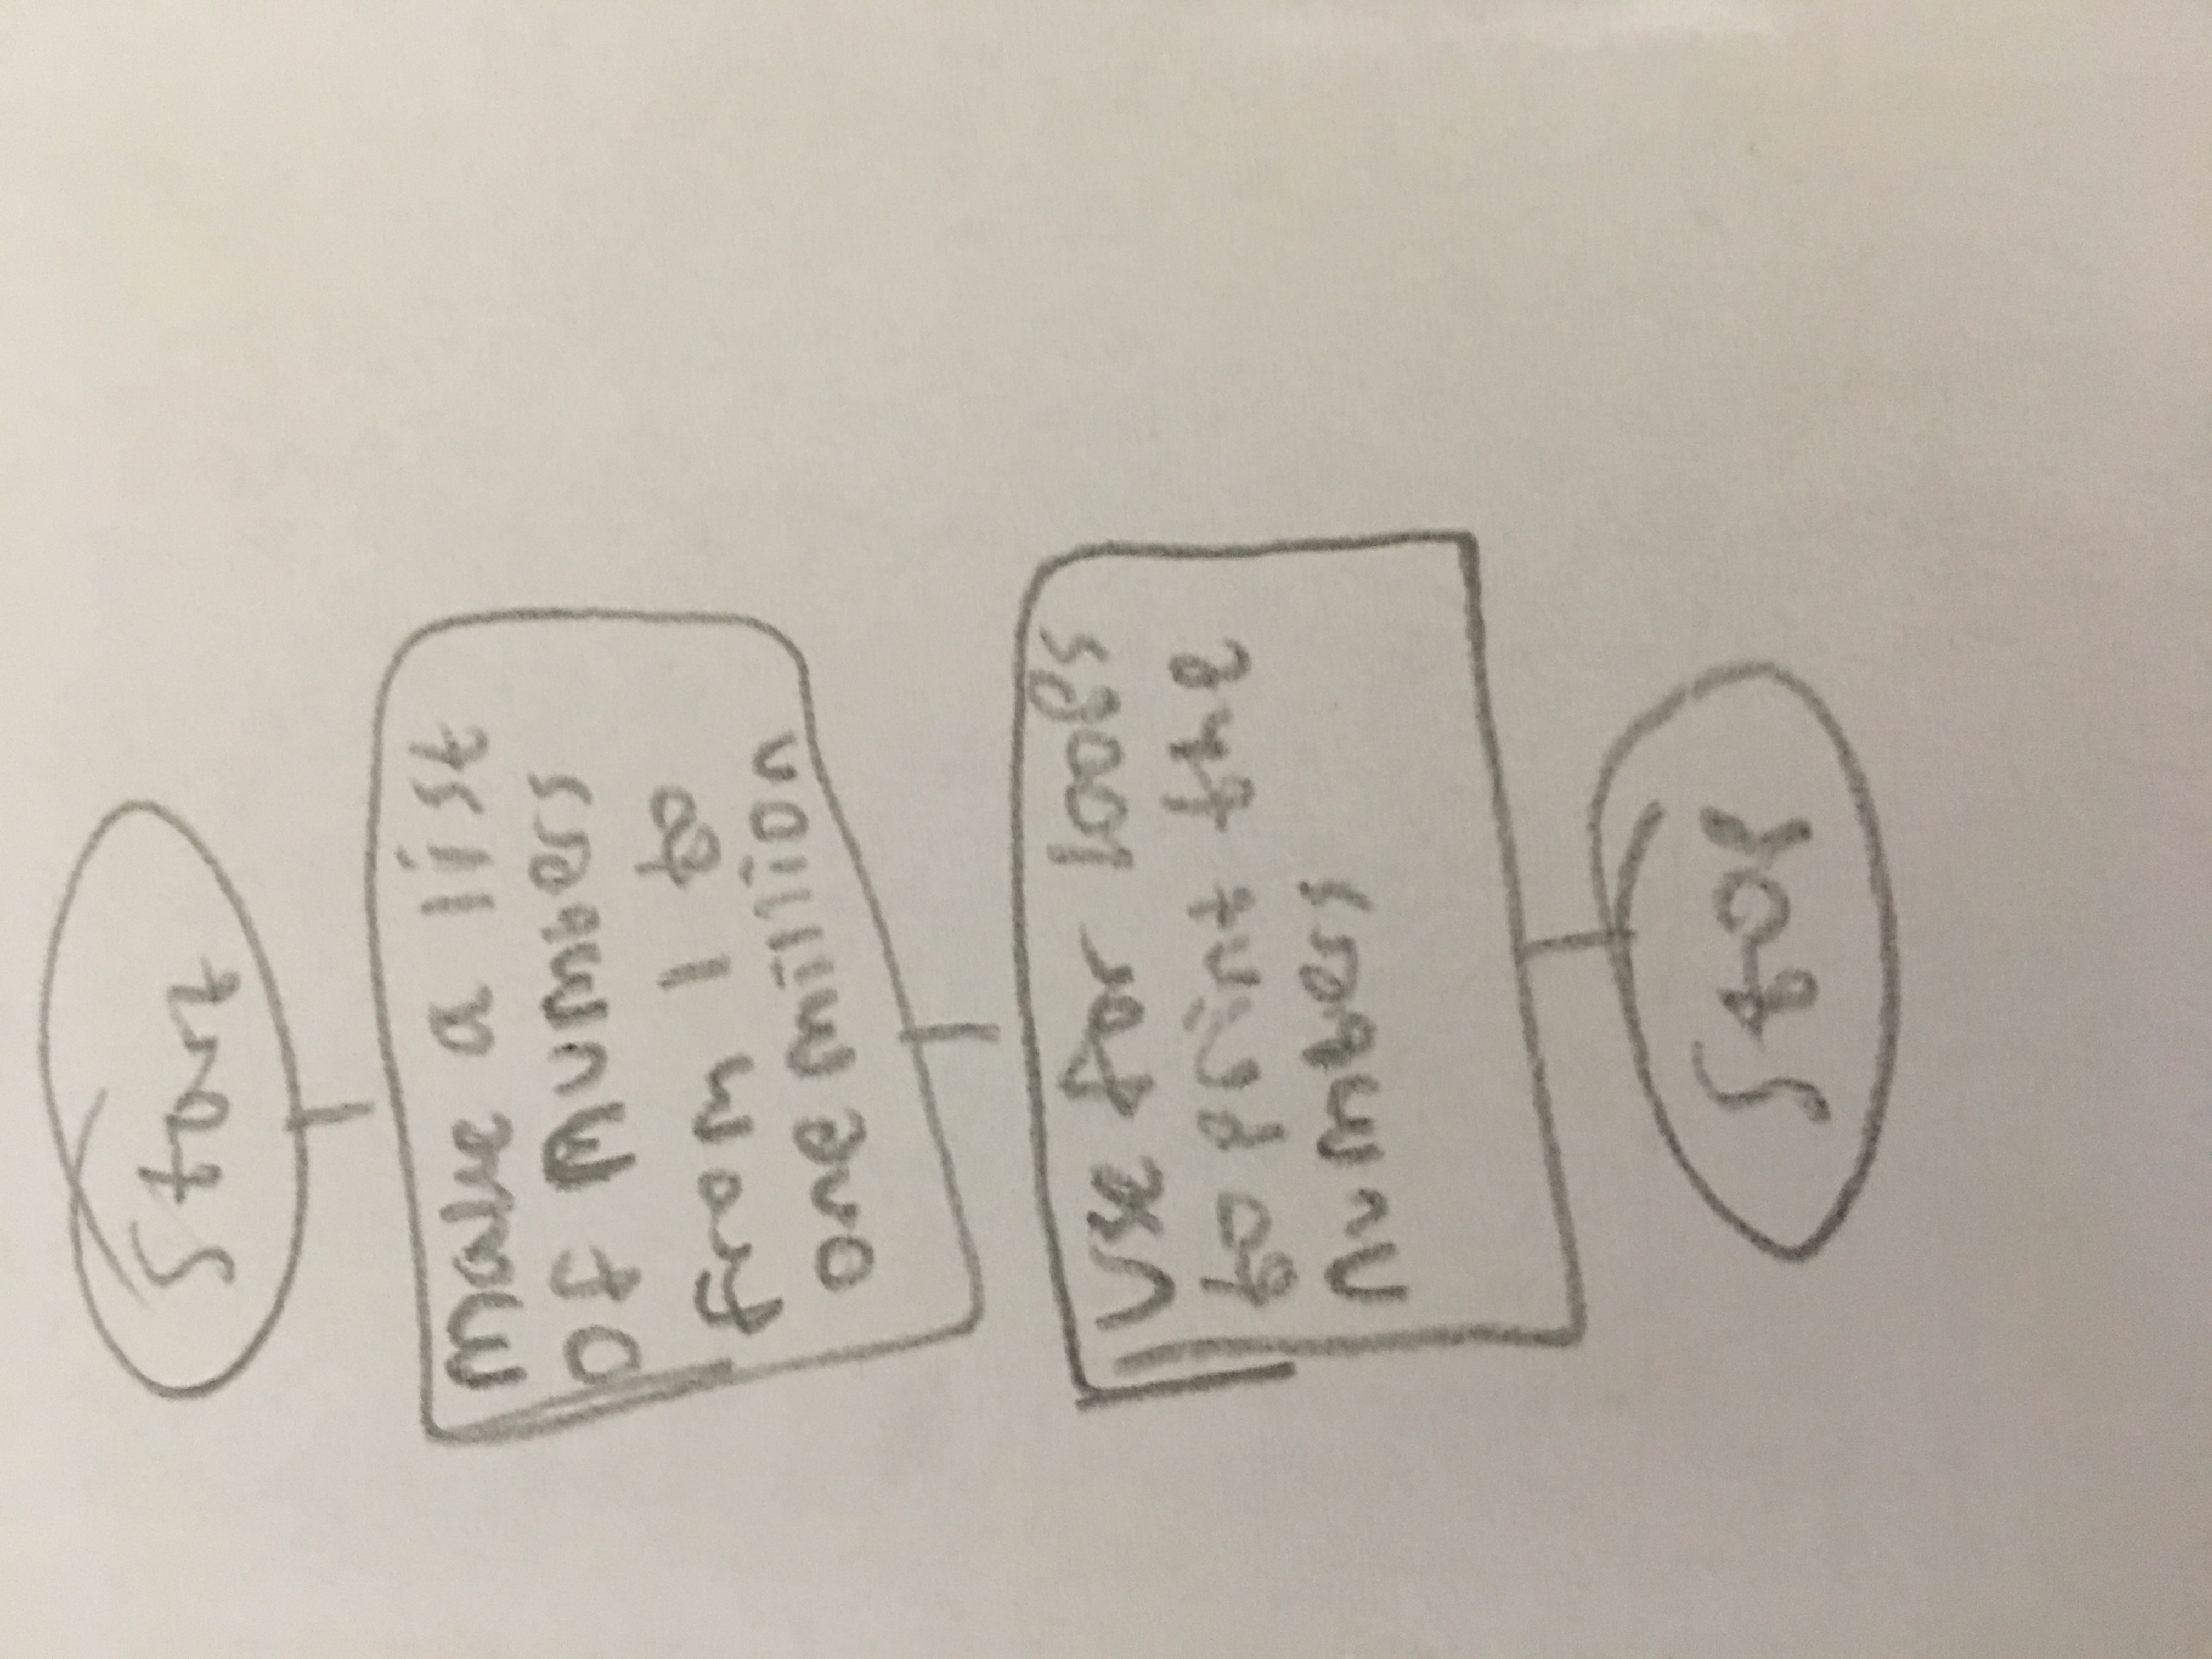 Start
Make a list
of numbers
from 1 to
one million
Use for loops
to print the
numbers
Stop